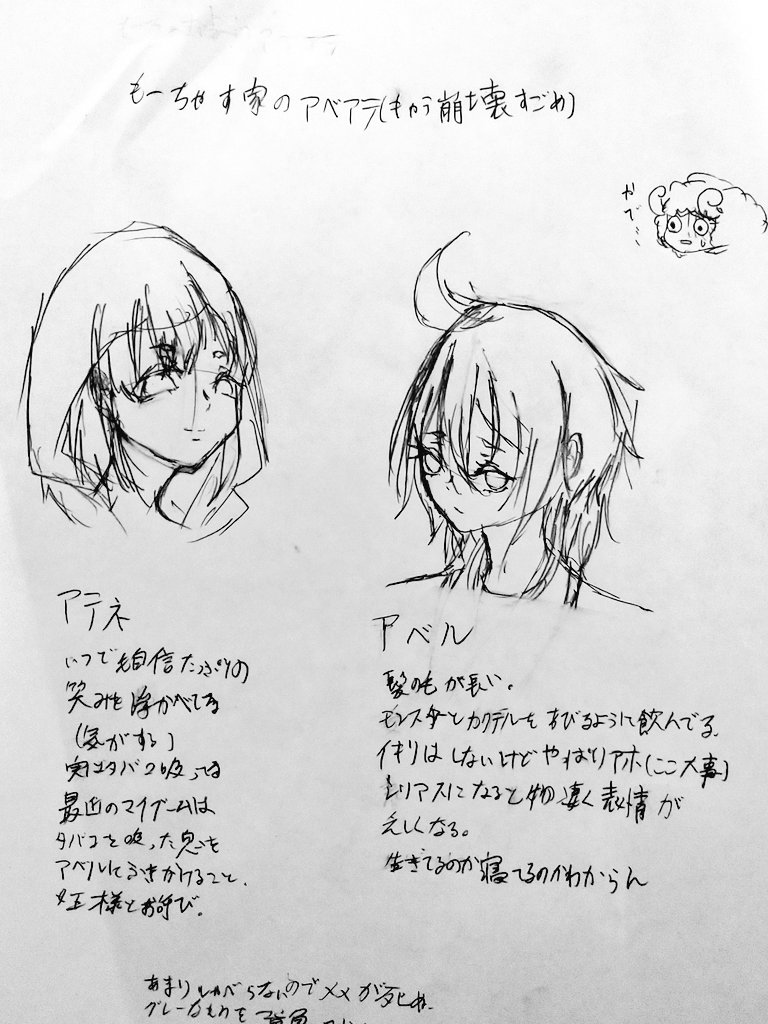 もーちゃす家のアベアテ(キャラ崩壊すごめ)
やで…
アテネ
いつでも自信たっぷりの
笑みを浮かべてる
(気がする)
実はタバコ吸ってる
最近のマイブームは
タバコを吸った息を
アベルにふきかけること。
女王様とお呼び。
アベル
髪の毛が長い。
モンスターとカクテルをあびるように飲んでる。
イキリはしないけどやっぱりアホ(ここ大事)
シリアスになると物凄く表情が
えしくなる。
生きてるのか寝てるのかわからん
あまりしゃべらないのでメメが死ぬ。
グレーがわりを